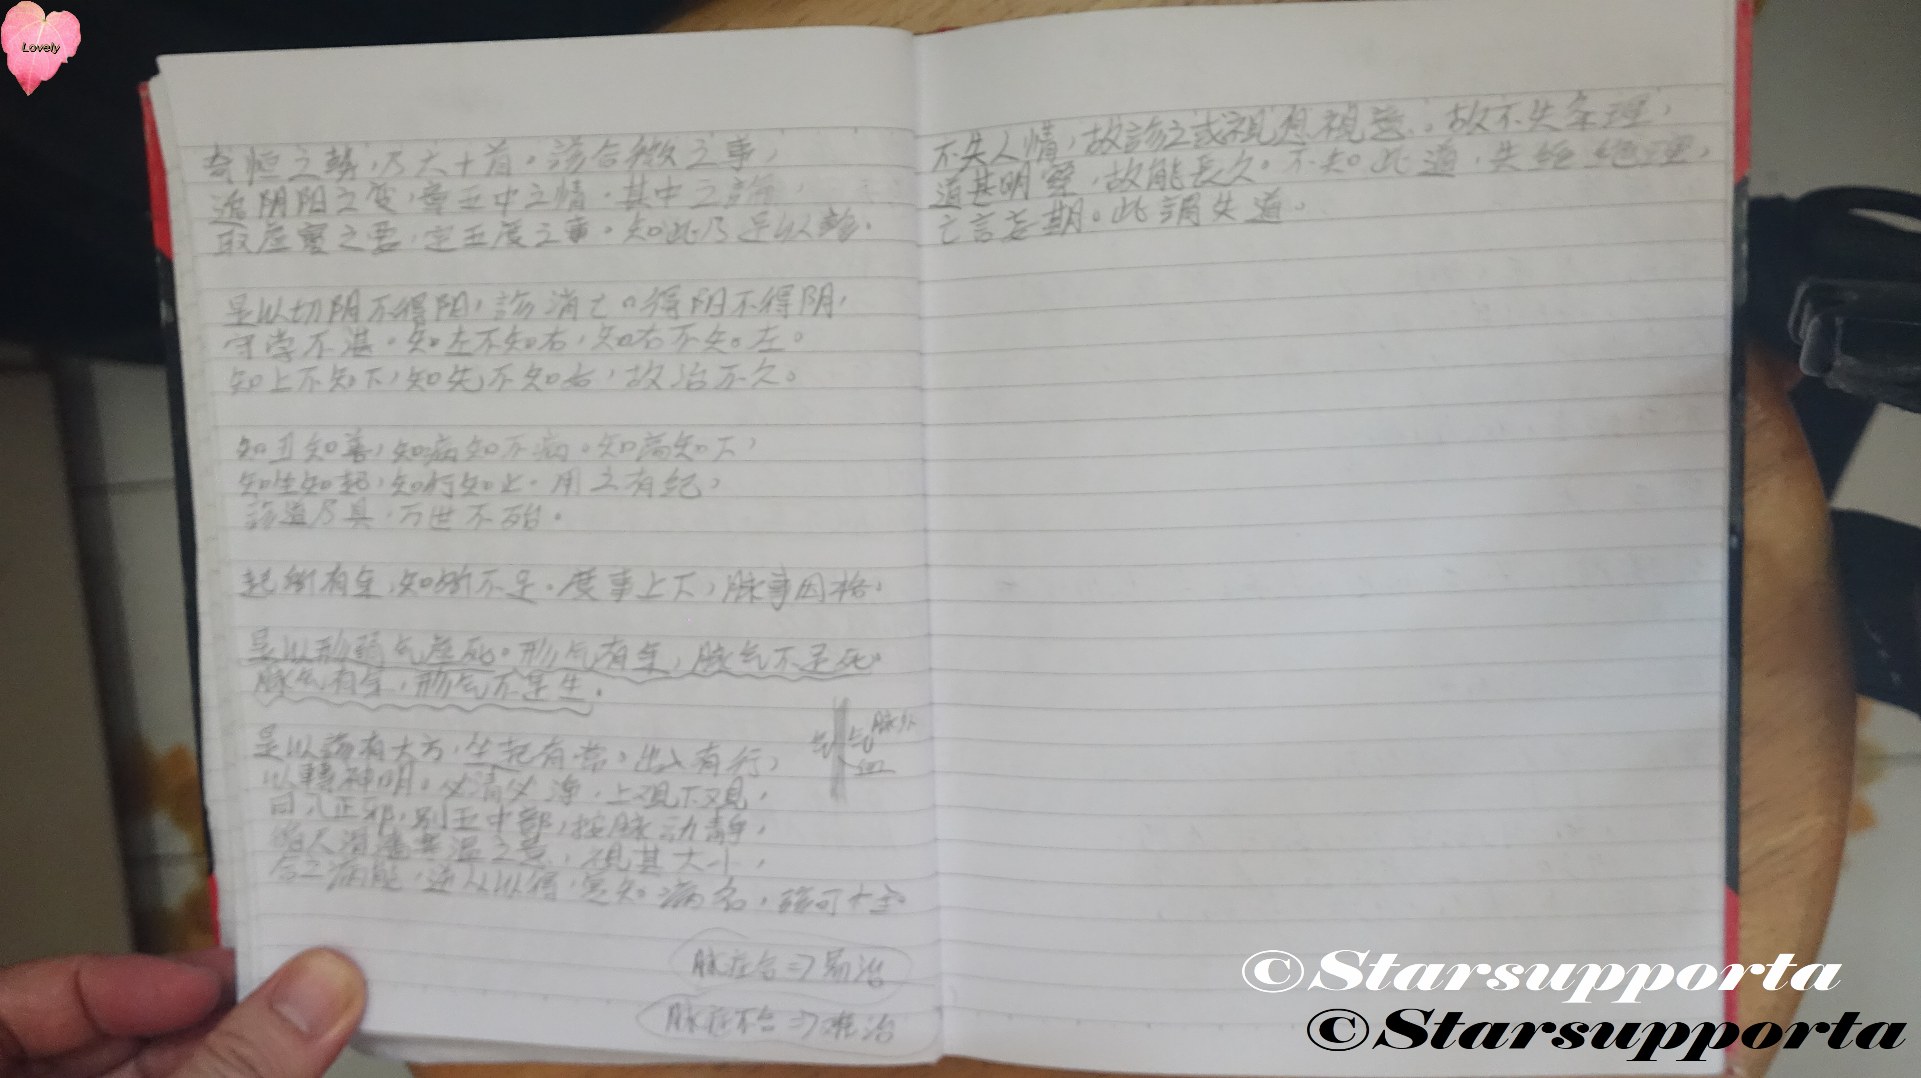 Lovely
奇恒之勢,乃六十首。診合微之事,
追阴阳之变,章五中之情。其中之論,
取虛實之要,定五度之事。知此乃足以診。
是以切阴不得阳,診消亡。得阳不得阴,
守学不湛。知左不知右,知右不知左。
知上不知下,知先不知后,故治不久。
知丑知善,知病知不病。知高知下,
知坐知起,知行知止。用之有纪,
診道乃具,万世不殆。
起所有余,知所不足。度事上下,脉事因格。
是以形弱气虚死。形气有余,脉气不足死。
脉气有余,形气不足生。
是以診有大方,坐起有常。出入有行,
以轉神明。必清必净,上观下观,
司八正邪,别五中部,按脉动静,
循尺滑濇寒温之意,视其大小,
合之病能,逆从以得,复知病名,診可十全
气
脉外
脉症合⇒易治
脉症不合⇒难治
不失人情,故診之或視息視意。故不失条理,
道甚明察,故能長久。不知此道,失經絕理,
亡言妄期。此謂失道。
©Starsupporta
©Starsupporta